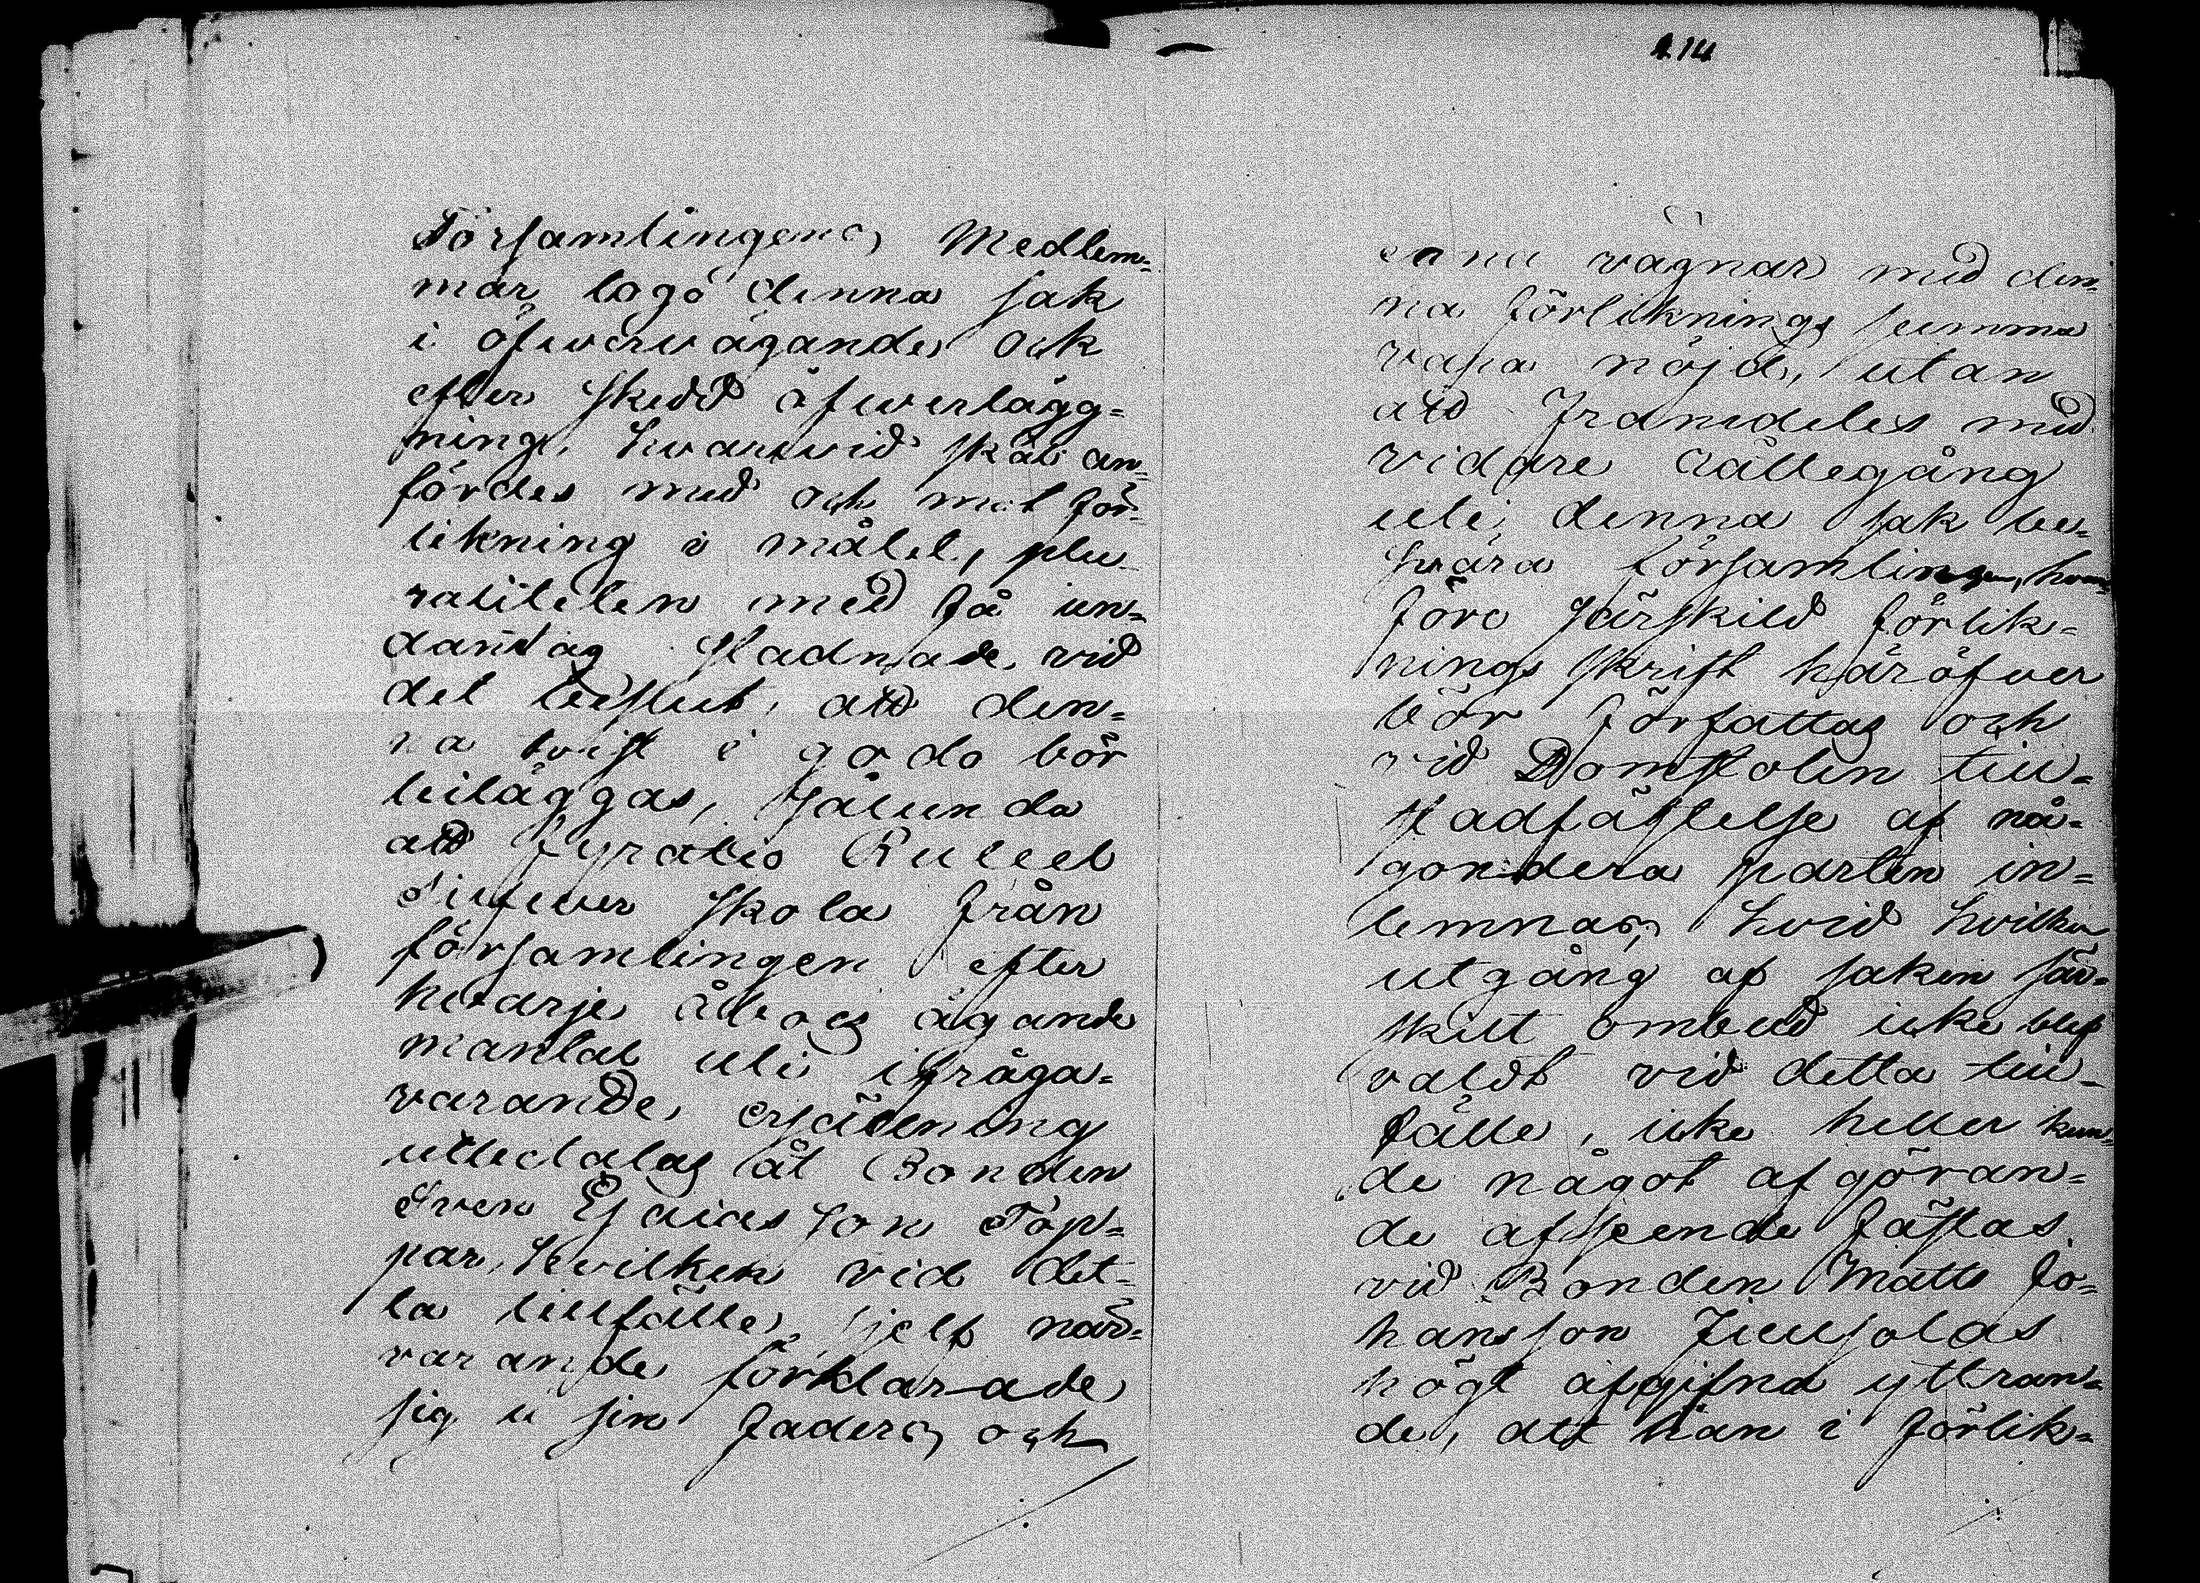 Församlingens Medlem=
mar togo denna sak
i öfwerwägande, och
efter skedd öfwerlägg=
ning, hwarwid skäl an=
fördes med och mot för=
likning i målet, plu
raliteten med få un=
dantag stadnade wid
det beslut, att den=
na twist i godo bör
biläggas, sålunda
att fyratio Rubel
Silfwer skola från
församlingen efter
hwarje åboes ägande
mantal uti ifråga=
varande, ersättning
utbetalas åt Bonden
Sven Esaiasson Töp=
par, hvilken vid det=
ta tillfälle, sjelf när=
varande förklarade
sig i sin Faders och
214
egna vägnar med den=
na förliknings summa
vara nöjd, utan
att framdeles med
vidare rättegång
uti denna sak be=
swära församlingen, hwar=
före särskild förlik=
nings skrift häröfver
bör författas och
vid Domstolen till
stadfästelse af nå=
gondera parten in=
lemnas, hvid hvilken
utgång af saken sär=
skilt ombud icke blef
valdt vid detta till=
fälle, icke heller kun=
de något afgöran=
de afseende fästas
vid Bonden Matts Jo=
hansson
högt afgifna yttran=
de, att han i förlik=